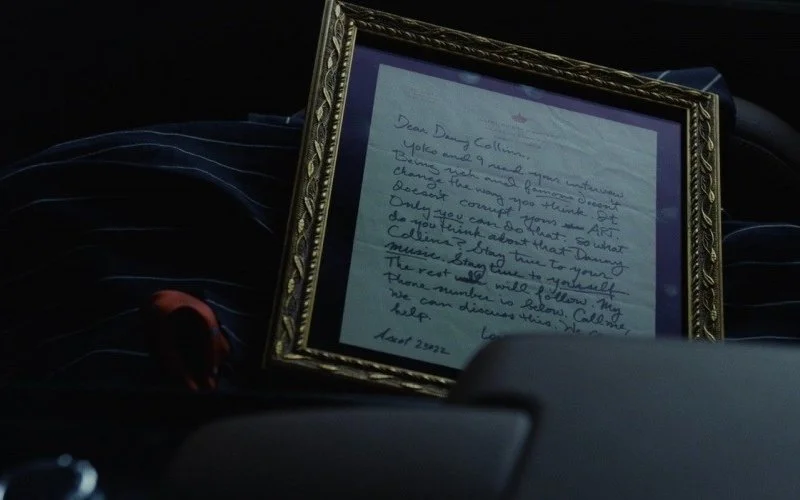 Dear Danny Collins,
Yoko and I read your interview.
Being rich and famous doesn't
change the way you think. It
doesn't corrupt your ART.
Only you can do that. So what
do you think about that Danny
Collins? Stay true to your
music. Stay true to yourself.
The rest will follow. My
Phone number is below. Call me,
we can discuss this. We can
help.
Ascot 23022